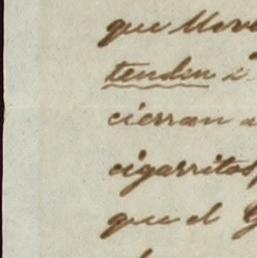 que lleve
tenden a
cierran a
cigarritos,
que el G